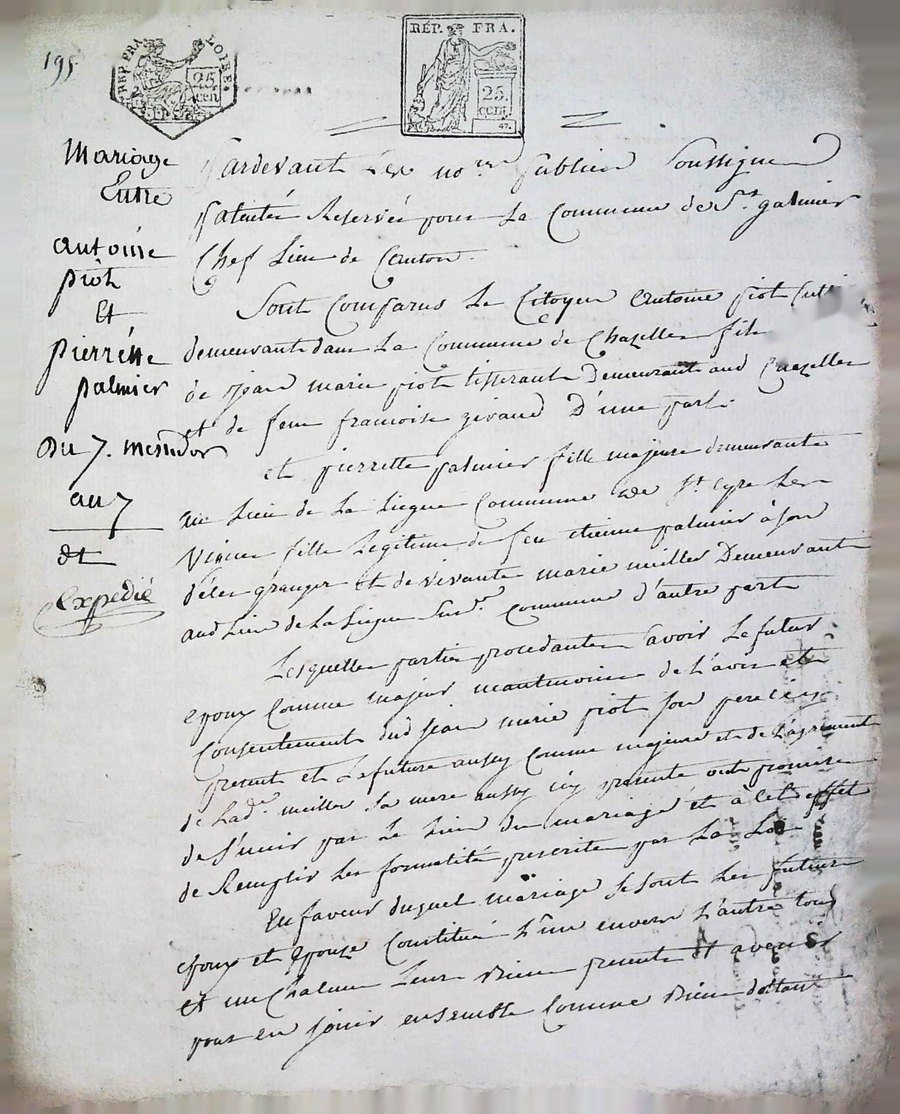 195
RÉP. FRA. LOIRE
25 CEN
RÉP. FRA.
25. CEN.
47.
Mariage
Entre
antoine
piot
Et
pierrette
palmier
Du 7. messidor
an 7
Et
Expedié
Pardevant Les no.res Publics Soussignés
Patentés Reservés pour La Commune de St. galmier
Chef Lieu de Canton.
Sont Comparus Le Citoyen Antoine piot
demeurant dans La Commune de Chazelle fils
de jean marie piot tisserant Demeurant aud Chazelle
et de feue francoise D'une part.
et pierrette palmier fille majeure demeurante
au Lieu de La Liegue Commune de St. Cyre Les
Vignes fille Legitime de feu etienne palmier à son
déces granger et de vivante marie meiller Demeurant
aud Lieu de La Liegue Sud. Commune d'autre part
Lesquelles parties procedantes savoir Le futur
epoux Comme majeur neantmoins de L'avis et
Consentement dud jean marie piot son pere icy
present et La future aussy Comme majeure et de L'agrement
de Lad. meiller sa mere aussy icy presente ont promis
de S'unir par Le Lien du mariage et à cet effet
de Remplir Les formalités prescrites par La Loi
En faveur duquel mariage se sont Les futurs
epoux et epouse Constitués L'un envers L'autre tous
et un Chacun Leurs Biens presents et avenir
pour en jouir ensemble Comme Biens dottaux